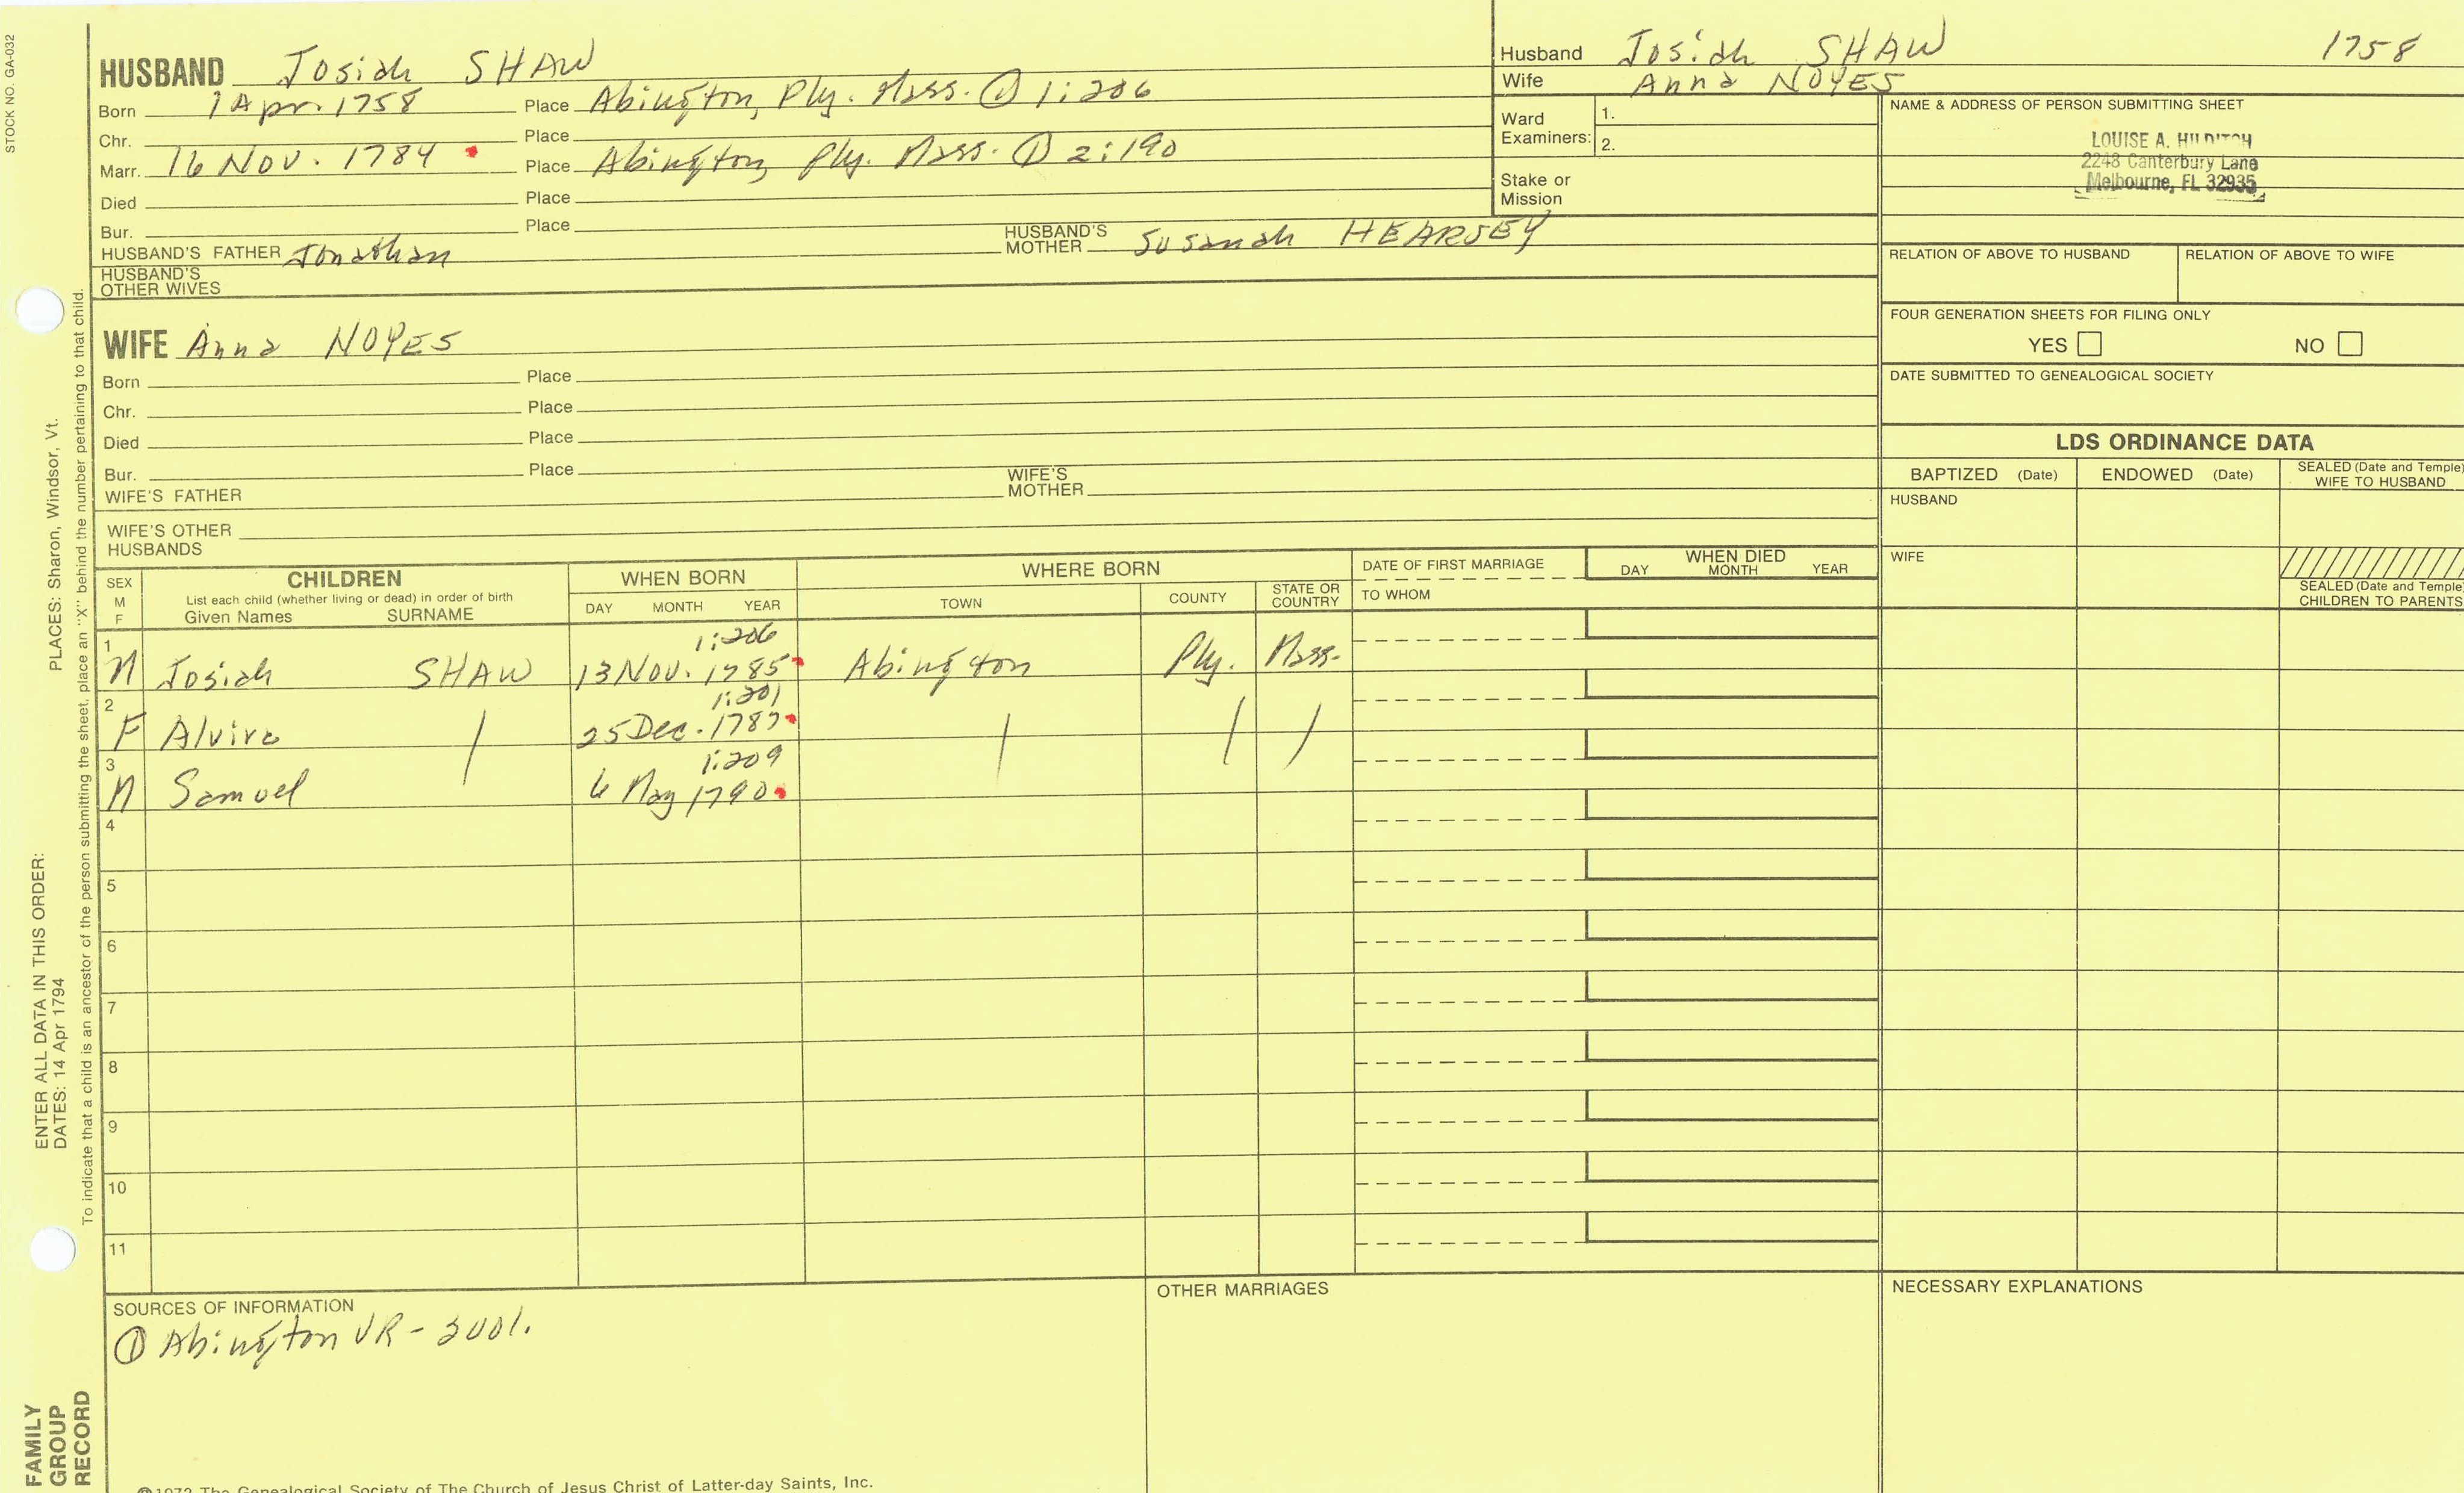 STOCK NO. GA-032
HUSBAND Josiah SHAW
Born 1 Apr. 1758 Place Abington, Ply. Mass. ① 1:206
Chr. Place
Marr. 16 Nov. 1784 Place Abington, Ply. Mass. ① 2:190
Died Place
Bur. Place
HUSBAND'S FATHER Jonathan HUSBAND'S MOTHER Susanah HEARSEY
HUSBAND'S OTHER WIVES
Husband Josiah SHAW 1758
Wife Anna NOYES
Ward Examiners: 1.
2.
Stake or Mission
NAME & ADDRESS OF PERSON SUBMITTING SHEET
LOUISE A. HILDITCH
2248 Canterbury Lane
Melbourne, FL 32935
RELATION OF ABOVE TO HUSBAND RELATION OF ABOVE TO WIFE
FOUR GENERATION SHEETS FOR FILING ONLY
YES NO
DATE SUBMITTED TO GENEALOGICAL SOCIETY
WIFE Anna NOYES
Born Place
Chr. Place
Died Place
Bur. Place
WIFE'S FATHER WIFE'S MOTHER
WIFE'S OTHER HUSBANDS
LDS ORDINANCE DATA
BAPTIZED (Date) ENDOWED (Date) SEALED (Date and Temple) WIFE TO HUSBAND
HUSBAND
WIFE
SEALED (Date and Temple) CHILDREN TO PARENTS
SEX M F
CHILDREN
List each child (whether living or dead) in order of birth
Given Names SURNAME
WHEN BORN
DAY MONTH YEAR
WHERE BORN
TOWN COUNTY STATE OR COUNTRY
DATE OF FIRST MARRIAGE
TO WHOM
WHEN DIED
DAY MONTH YEAR
1:206
1 M Josiah SHAW 13 Nov. 1785 Abington Ply. Mass.
1:201
2 F Alvira 25 Dec. 1787
1:209
3 M Samuel 6 May 1790
4
5
6
7
8
9
10
11
SOURCES OF INFORMATION
① Abington VR -
OTHER MARRIAGES
NECESSARY EXPLANATIONS
©1972 The Genealogical Society of The Church of Jesus Christ of Latter-day Saints, Inc.
PLACES: Sharon, Windsor, Vt.
To indicate that a child is an ancestor of the person submitting the sheet, place an "X" behind the number pertaining to that child.
ENTER ALL DATA IN THIS ORDER:
DATES: 14 Apr 1794
FAMILY
GROUP
RECORD